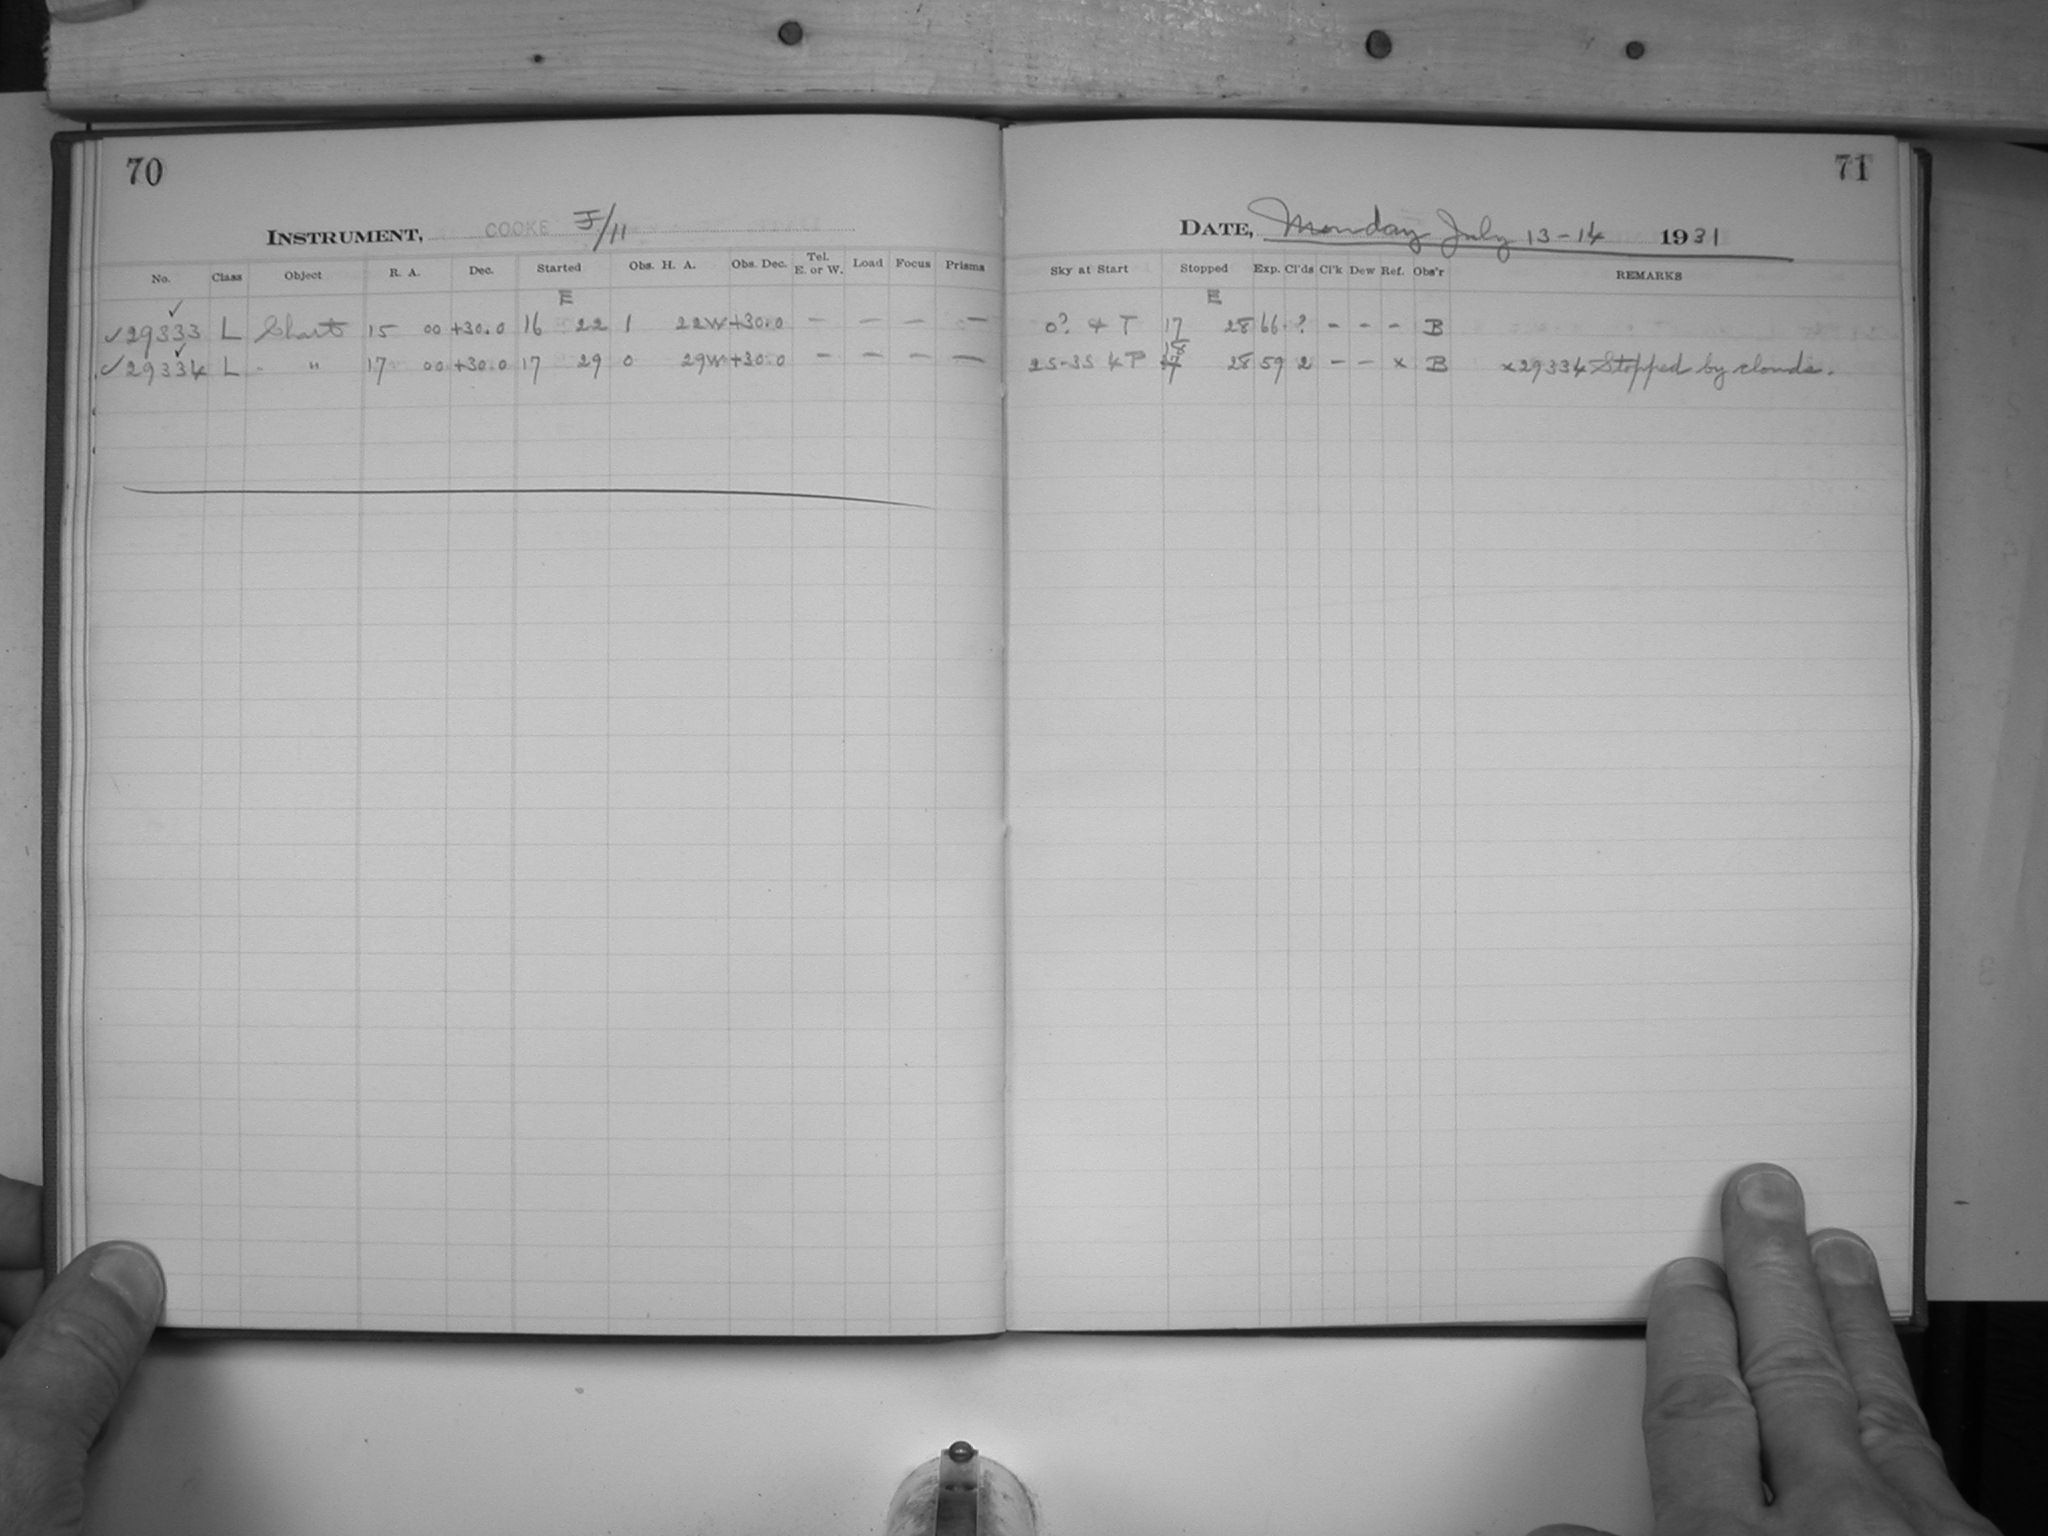 70
INSTRUMENT, COOKE F/11
No. Class Object R. A. Dec. Started Obs. H. A. Obs. Dec. Tel. E. or W. Load Focus Prisms
E
✓29333 L Chart 15 00 +30.0 16 22 1 22W +30.0 — — — —
✓29334 L " 17 00 +30.0 17 29 0 29W +30.0 — — — —
71
DATE, Monday July 13-14 1931
Sky at Start Stopped Exp. Cl'ds Cl'k Dew Ref. Obs'r REMARKS
E
0? & T 17 28 66 ? - - - B
25-35 & P 28 59 2 - - x B x29334 Stopped by clouds.